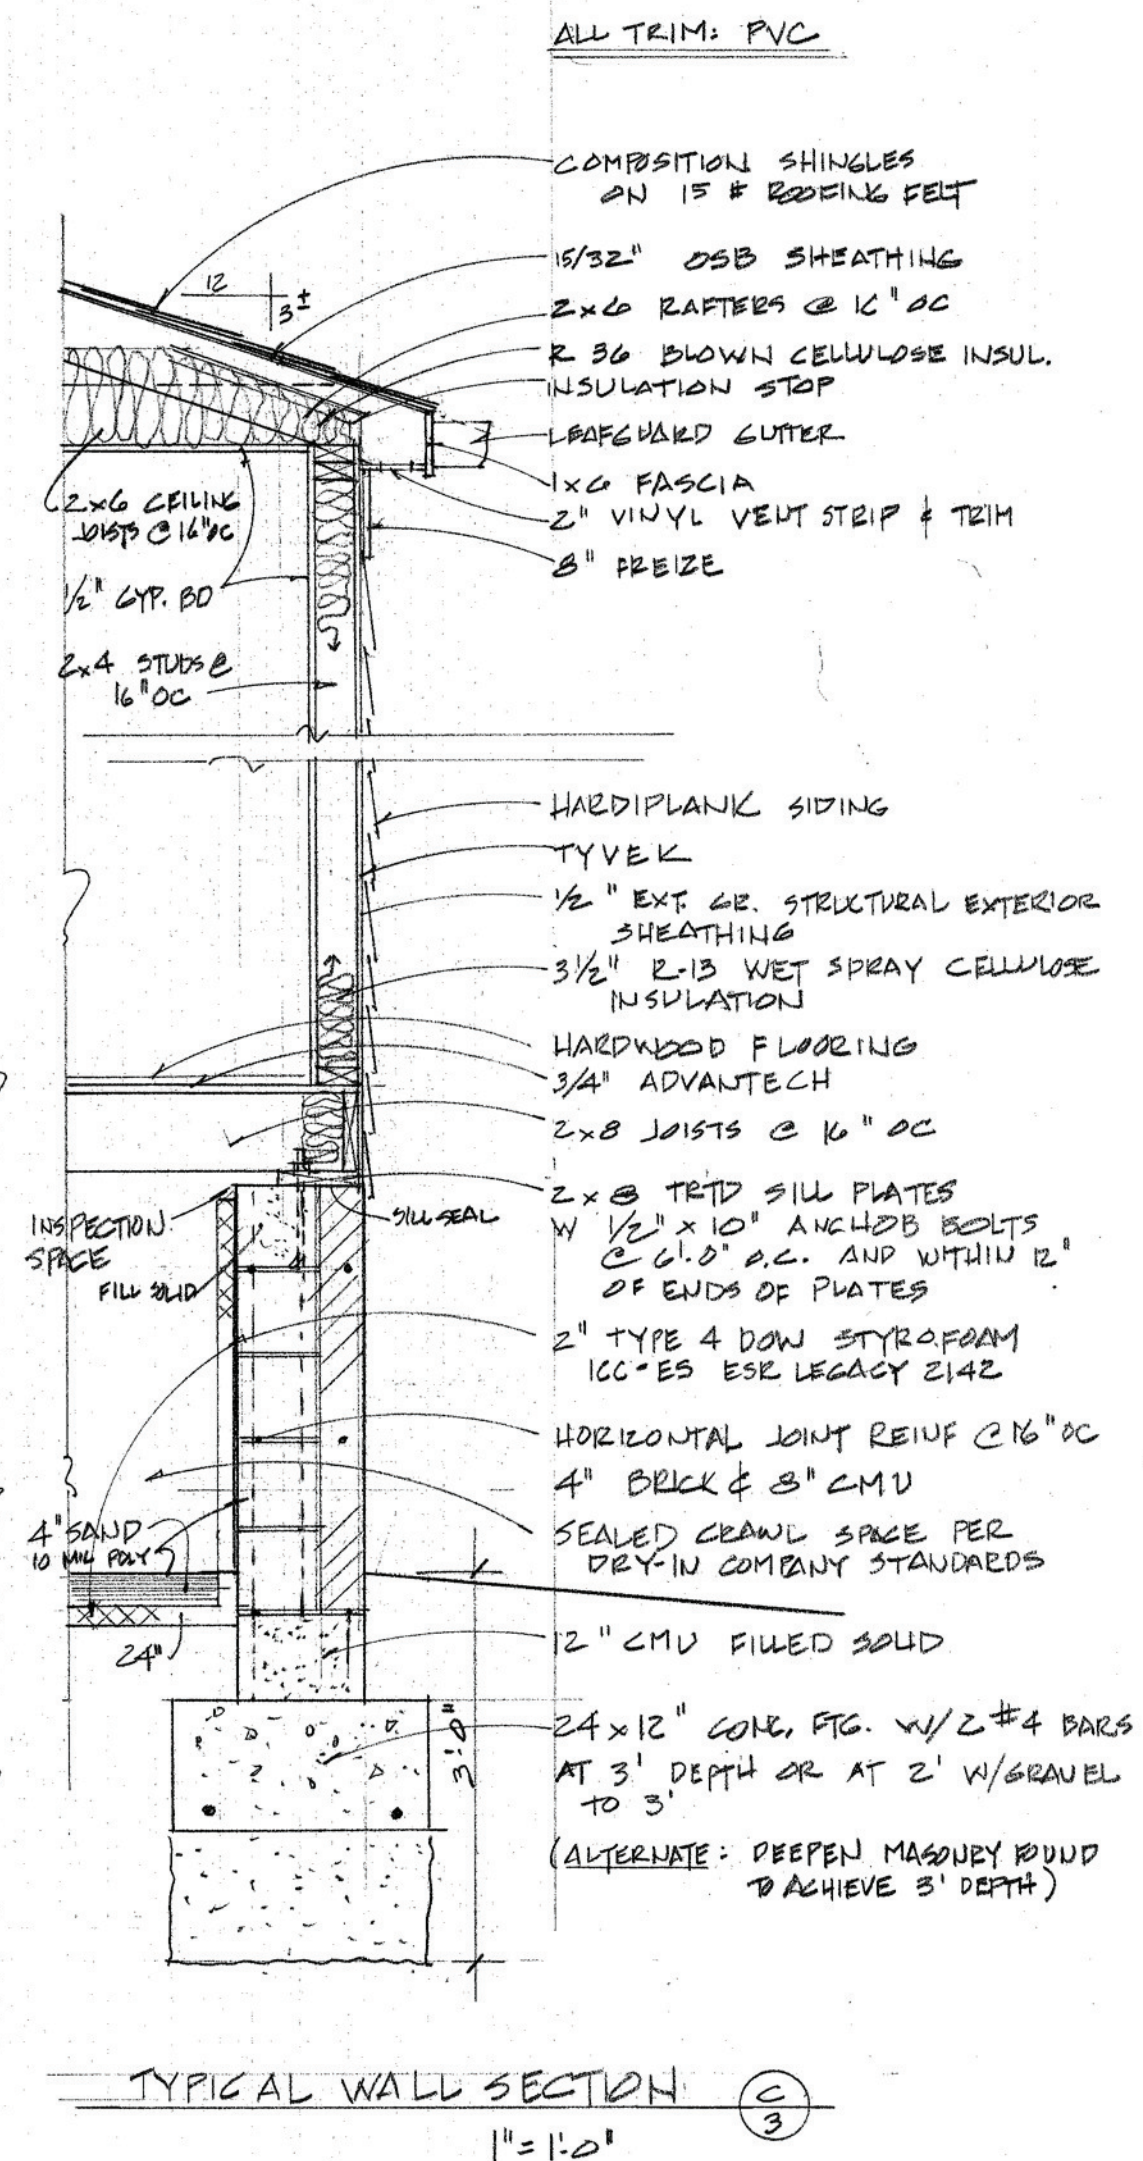 ALL TRIM: PVC
COMPOSITION SHINGLES
ON 15 # ROOFING FELT
15/32" OSB SHEATHING
12
3 ±
2x6 RAFTERS @ 16" OC
R 36 BLOWN CELLULOSE INSUL.
INSULATION STOP
LEAFGUARD GUTTER
1x6 FASCIA
2" VINYL VENT STRIP & TRIM
8" FREIZE
2x6 CEILING
JOISTS @ 16"OC
1/2" GYP. BD
2x4 STUDS @
16"OC
HARDIPLANK SIDING
TYVEK
1/2" EXT. GR. STRUCTURAL EXTERIOR
SHEATHING
3 1/2" R-13 WET SPRAY CELLULOSE
INSULATION
HARDWOOD FLOORING
3/4" ADVANTECH
2x8 JOISTS @ 16" OC
2x8 TRTD SILL PLATES
W 1/2" x 10" ANCHOB BOLTS
@ 6'.0" O.C. AND WITHIN 12"
OF ENDS OF PLATES
INSPECTION
SPACE
SILL SEAL
FILL SOLID
2" TYPE 4 DOW STYROFOAM
ICC-ES ESR LEGACY 2142
HORIZONTAL JOINT REINF @ 16" OC
4" BRICK & 8" CMU
SEALED CRAWL SPACE PER
DRY-IN COMPANY STANDARDS
4" SAND
10 MIL POLY
24"
12" CMU FILLED SOLID
3'.0"
24x12" CONC. FTG. W/2 #4 BARS
AT 3' DEPTH OR AT 2' W/GRAVEL
TO 3'
(ALTERNATE: DEEPEN MASONRY FOUND
TO ACHIEVE 3' DEPTH)
TYPICAL WALL SECTION
C
3
1" = 1'.0"